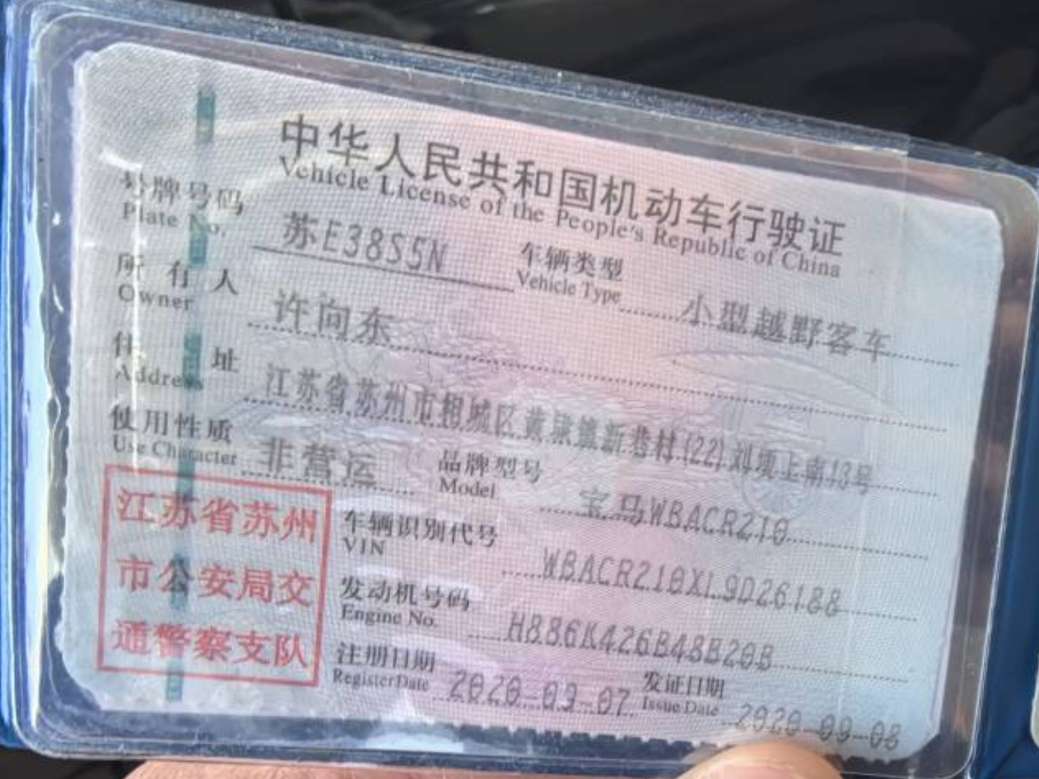 中华人民共和国机动车行驶证
Vehicle License of the People's Republic of China
号牌号码 苏E38S5N 车辆类型 小型越野客车
Plate No. Vehicle Type
所有人 许向东
Owner
住址 江苏省苏州市相城区黄埭镇新巷村(22)刘埂上南13号
Address
使用性质 非营运 品牌型号 宝马WBACR210
Use Character Model
江苏省苏州
市公安局交
通警察支队
车辆识别代号 WBACR210XL9D26188
VIN
发动机号码 H886K426B48B20B
Engine No.
注册日期 2020-09-07 发证日期 2020-09-08
Register Date Issue Date